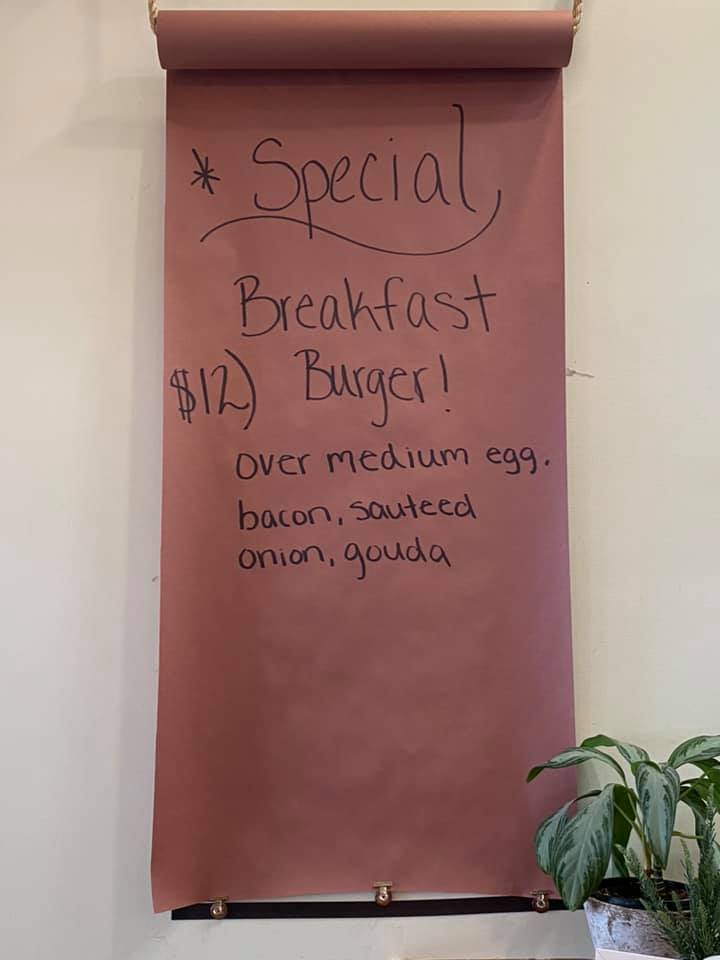 * Special
Breakfast
$12) Burger!
over medium egg.
bacon, sauteed
onion, gouda